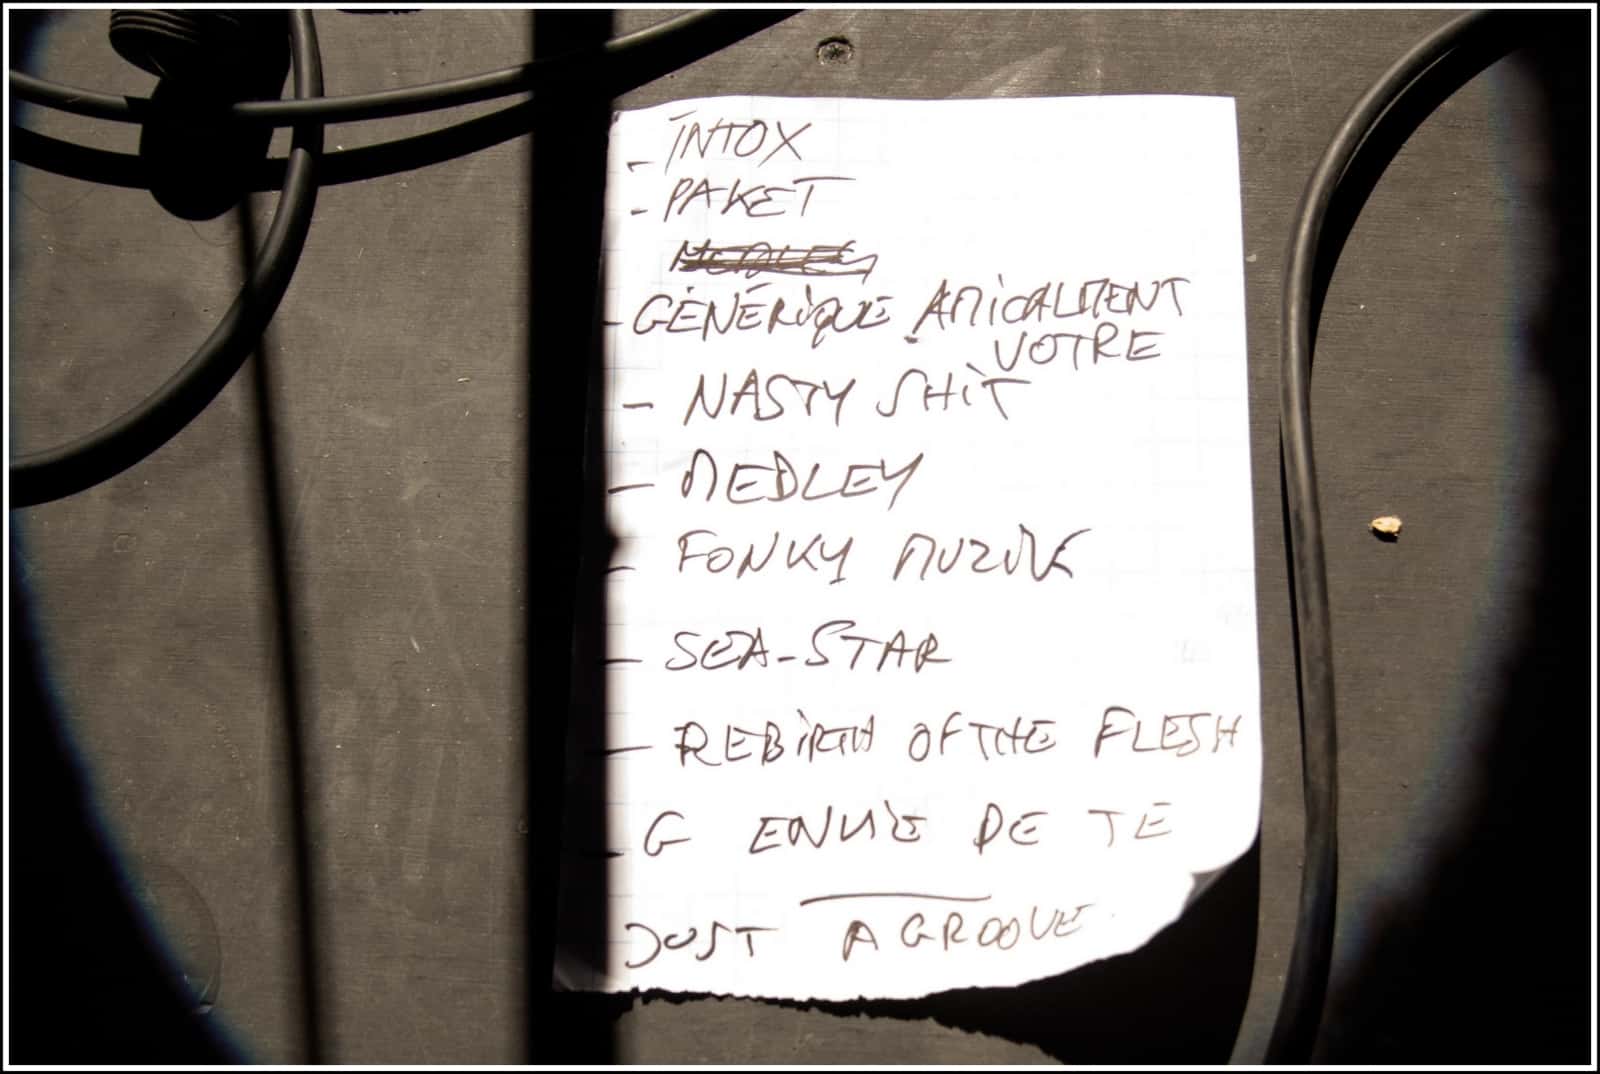 - INTOX
- PAKET
MEDLEY
- GÉNÉRIQUE AMICALMENT
VOTRE
- NASTY SHIT
- MEDLEY
- FONKY MUZIK
- SEA-STAR
- REBIRTH OF THE FLESH
- G ENVIE DE TE
JUST A GROOVE